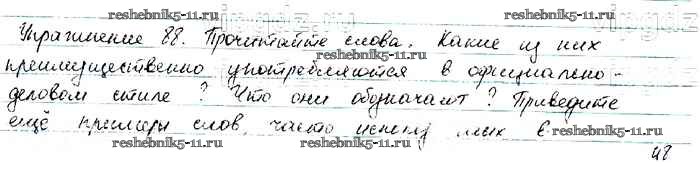 reshebnik5-11.ru
Упражнение 88. Прочитайте слова. Какие из них
преимущественно употребляются в официально-
reshebnik5-11.ru
деловом стиле? Что они обозначают? Приведите
ещё примеры слов, часто
reshebnik5-11.ru reshebnik5-11.ru
48